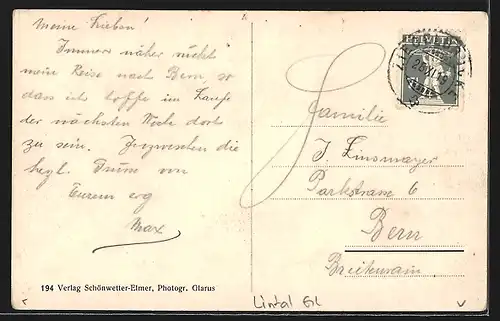 Meine Lieben!
Immer näher rückt
meine Reise nach Bern, so
dass ich hoffe im Laufe
der nächsten Woche dort
zu sein. Inzwischen die
herzl. Grüsse von
Eurem erg
Max
194 Verlag Schönwetter-Elmer, Photogr. Glarus
Familie
J. Linsmayer
Parkstrasse 6
Bern
Breitenrain
HELVETIA
Lintal GL